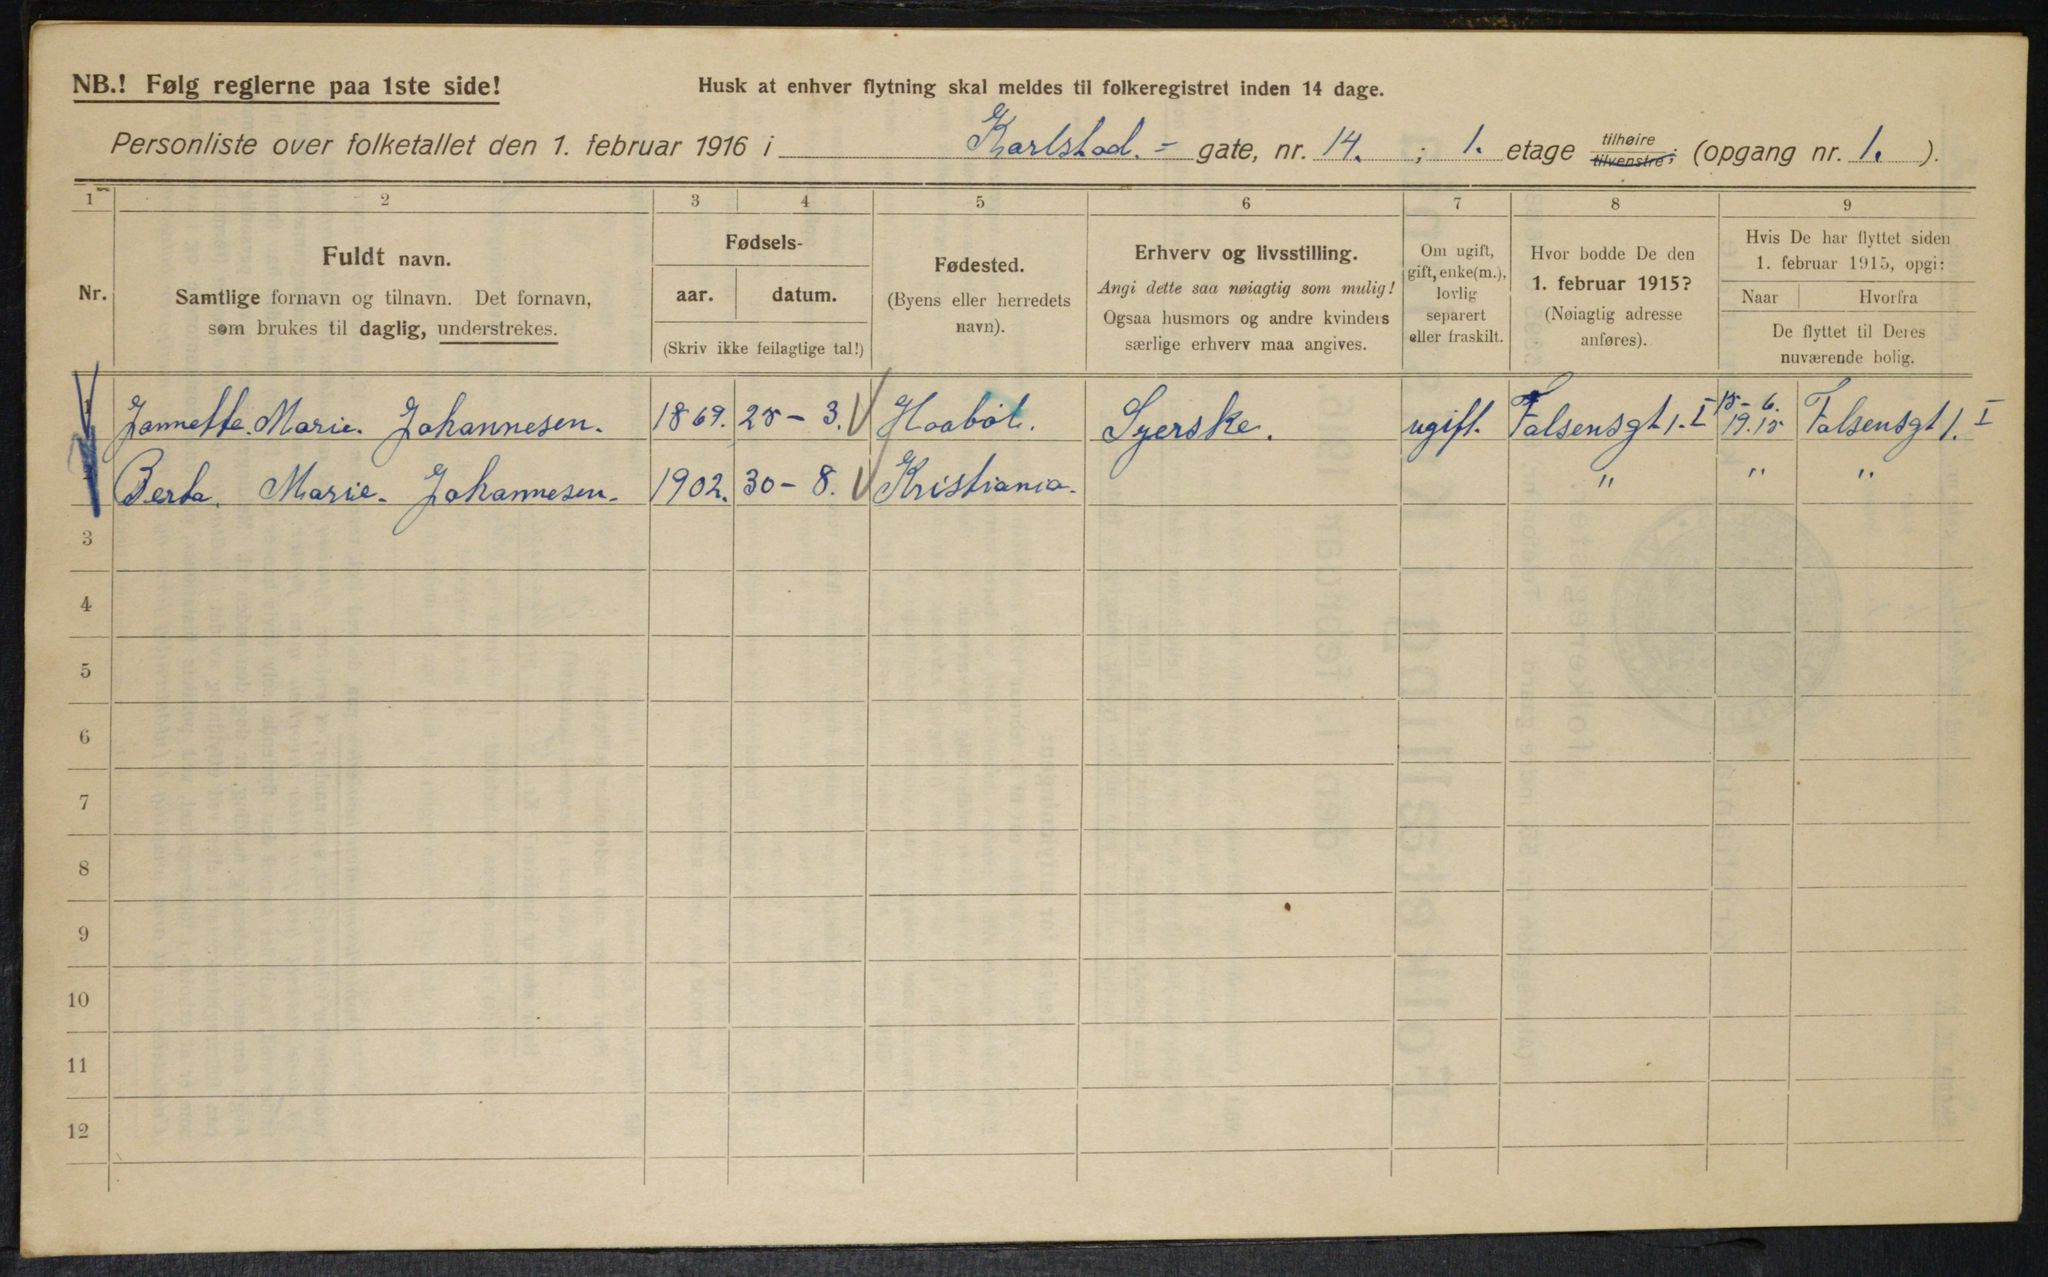 NB.! Følg reglerne paa 1ste side!
Husk at enhver flytning skal meldes til folkeregistret inden 14 dage.
Personliste over folketallet den 1. februar 1916 i Karlstad.- gate, nr. 14. ; 1. etage tilhøire tilvenstre; (opgang nr. 1. ).
1 2 3 4 5 6 7 8 9
Nr.
Fuldt navn.
Samtlige fornavn og tilnavn. Det fornavn,
som brukes til daglig, understrekes.
Fødsels-
aar. datum.
(Skriv ikke feilagtige tal!)
Fødested.
(Byens eller herredets
navn).
Erhverv og livsstilling.
Angi dette saa nøiagtig som mulig!
Ogsaa husmors og andre kvinders
særlige erhverv maa angives.
Om ugift,
gift, enke(m.),
lovlig
separert
eller fraskilt.
Hvor bodde De den
1. februar 1915?
(Nøiagtig adresse
anføres).
Hvis De har flyttet siden
1. februar 1915, opgi:
Naar Hvorfra
De flyttet til Deres
nuværende bolig.
1 Jannette. Marie. Johannesen. 1869. 25-3. Haabøl. Syerske. ugift. Falsensgt 1. I 15-6. 19.15 Falsensgt 1. I
Berta. Marie. Johannesen. 1902. 30-8. Kristiania. " " "
3
4
5
6
7
8
9
10
11
12